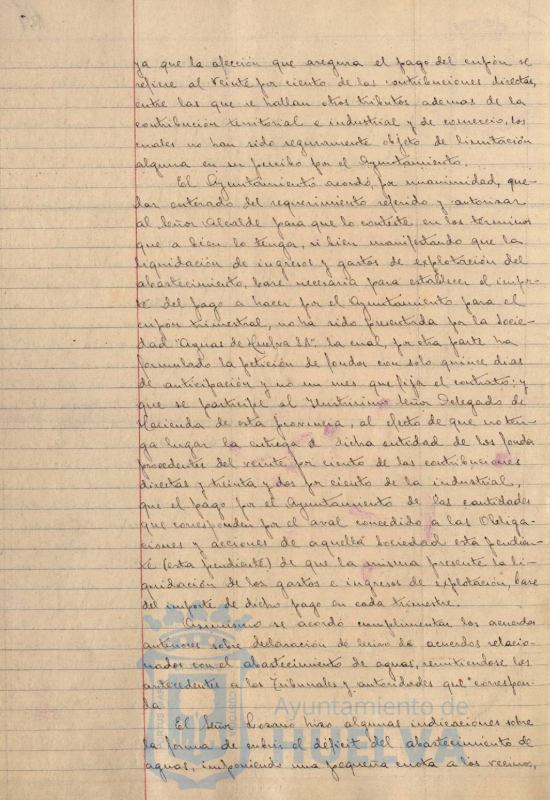 ya que la afección que asegura el pago del cupón se
refiere al veinte por ciento de las contribuciones directas,
entre las que se hallan otros tributos ademas de la
contribución territorial e industrial y de comercio, los
cuales no han sido seguramente objeto de limitación
alguna en su percibo por el Ayuntamiento.
El Ayuntamiento acordó, por unanimidad, que-
dar enterado del requerimiento referido y autorizar
al Señor Alcalde para que lo conteste en los términos
que a bien lo tenga, si bien manifestando que la
liquidación de ingresos y gastos de explotación del
abastecimiento, base necesaria para establecer el impor-
te del pago a hacer por el Ayuntamiento para el
cupón trimestral, no ha sido presentada por la Socie-
dad "Aguas de Huelva SA" la cual, por otra parte ha
formulado la petición de fondos con solo quince dias
de anticipación y no un mes que fija el contrato; y
que se participe al Ilustrisimo Señor Delegado de
Hacienda de esta provincia, al efecto de que no ten-
ga lugar la entrega a dicha entidad de los fondos
procedentes del veinte por ciento de las contribuciones
directas y treinta y dos por ciento de la industrial,
que el pago por el Ayuntamiento de las cantidades
que corresponden por el aval concedido a las Obliga-
ciones y acciones de aquella Sociedad esta pendian-
te (esta pendiente) de que la misma presente la li-
quidación de los gastos e ingresos de explotación, base
del importe de dicho pago en cada trimestre.
Asimismo se acordó cumplimentar los acuerdos
anteriores sobre declaración de lesivo de acuerdos relacio-
nados con el abastecimiento de aguas, remitiendose los
antecedentes a los Tribunales y autoridades que correspon-
da.
El Señor Lozano hizo algunas indicaciones sobre
la forma de cubrir el déficit del abastecimiento de
aguas, imponiendo una pequeña cuota a los vecinos,
Ayuntamiento de
HUELVA